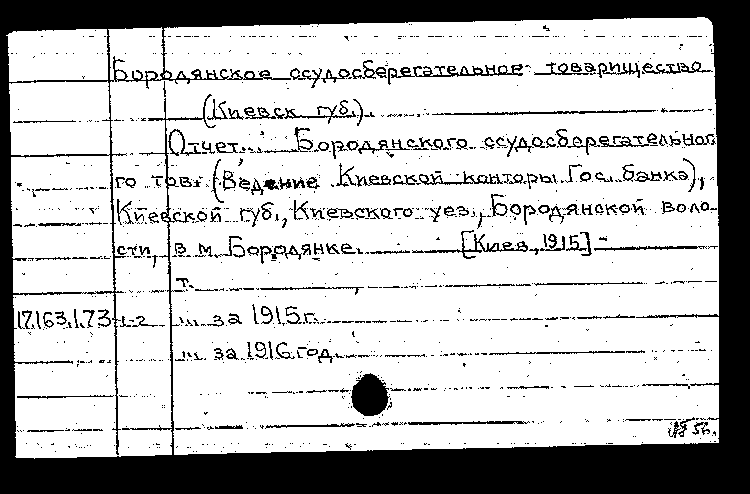 Бородянское ссудосберегательное товарищество
(Киевск губ.).
Отчет... Бородянского ссудосберегательно
го тов. (Ведение Киевской конторы Гос. банка),
Киевской губ., Киевского уез., Бородянской воло-
сти, в м. Бородянке. [Киев, 1915] -
т.
17.163.1.73 1-2 ... за 1915 г.
... за 1916 год.
56.